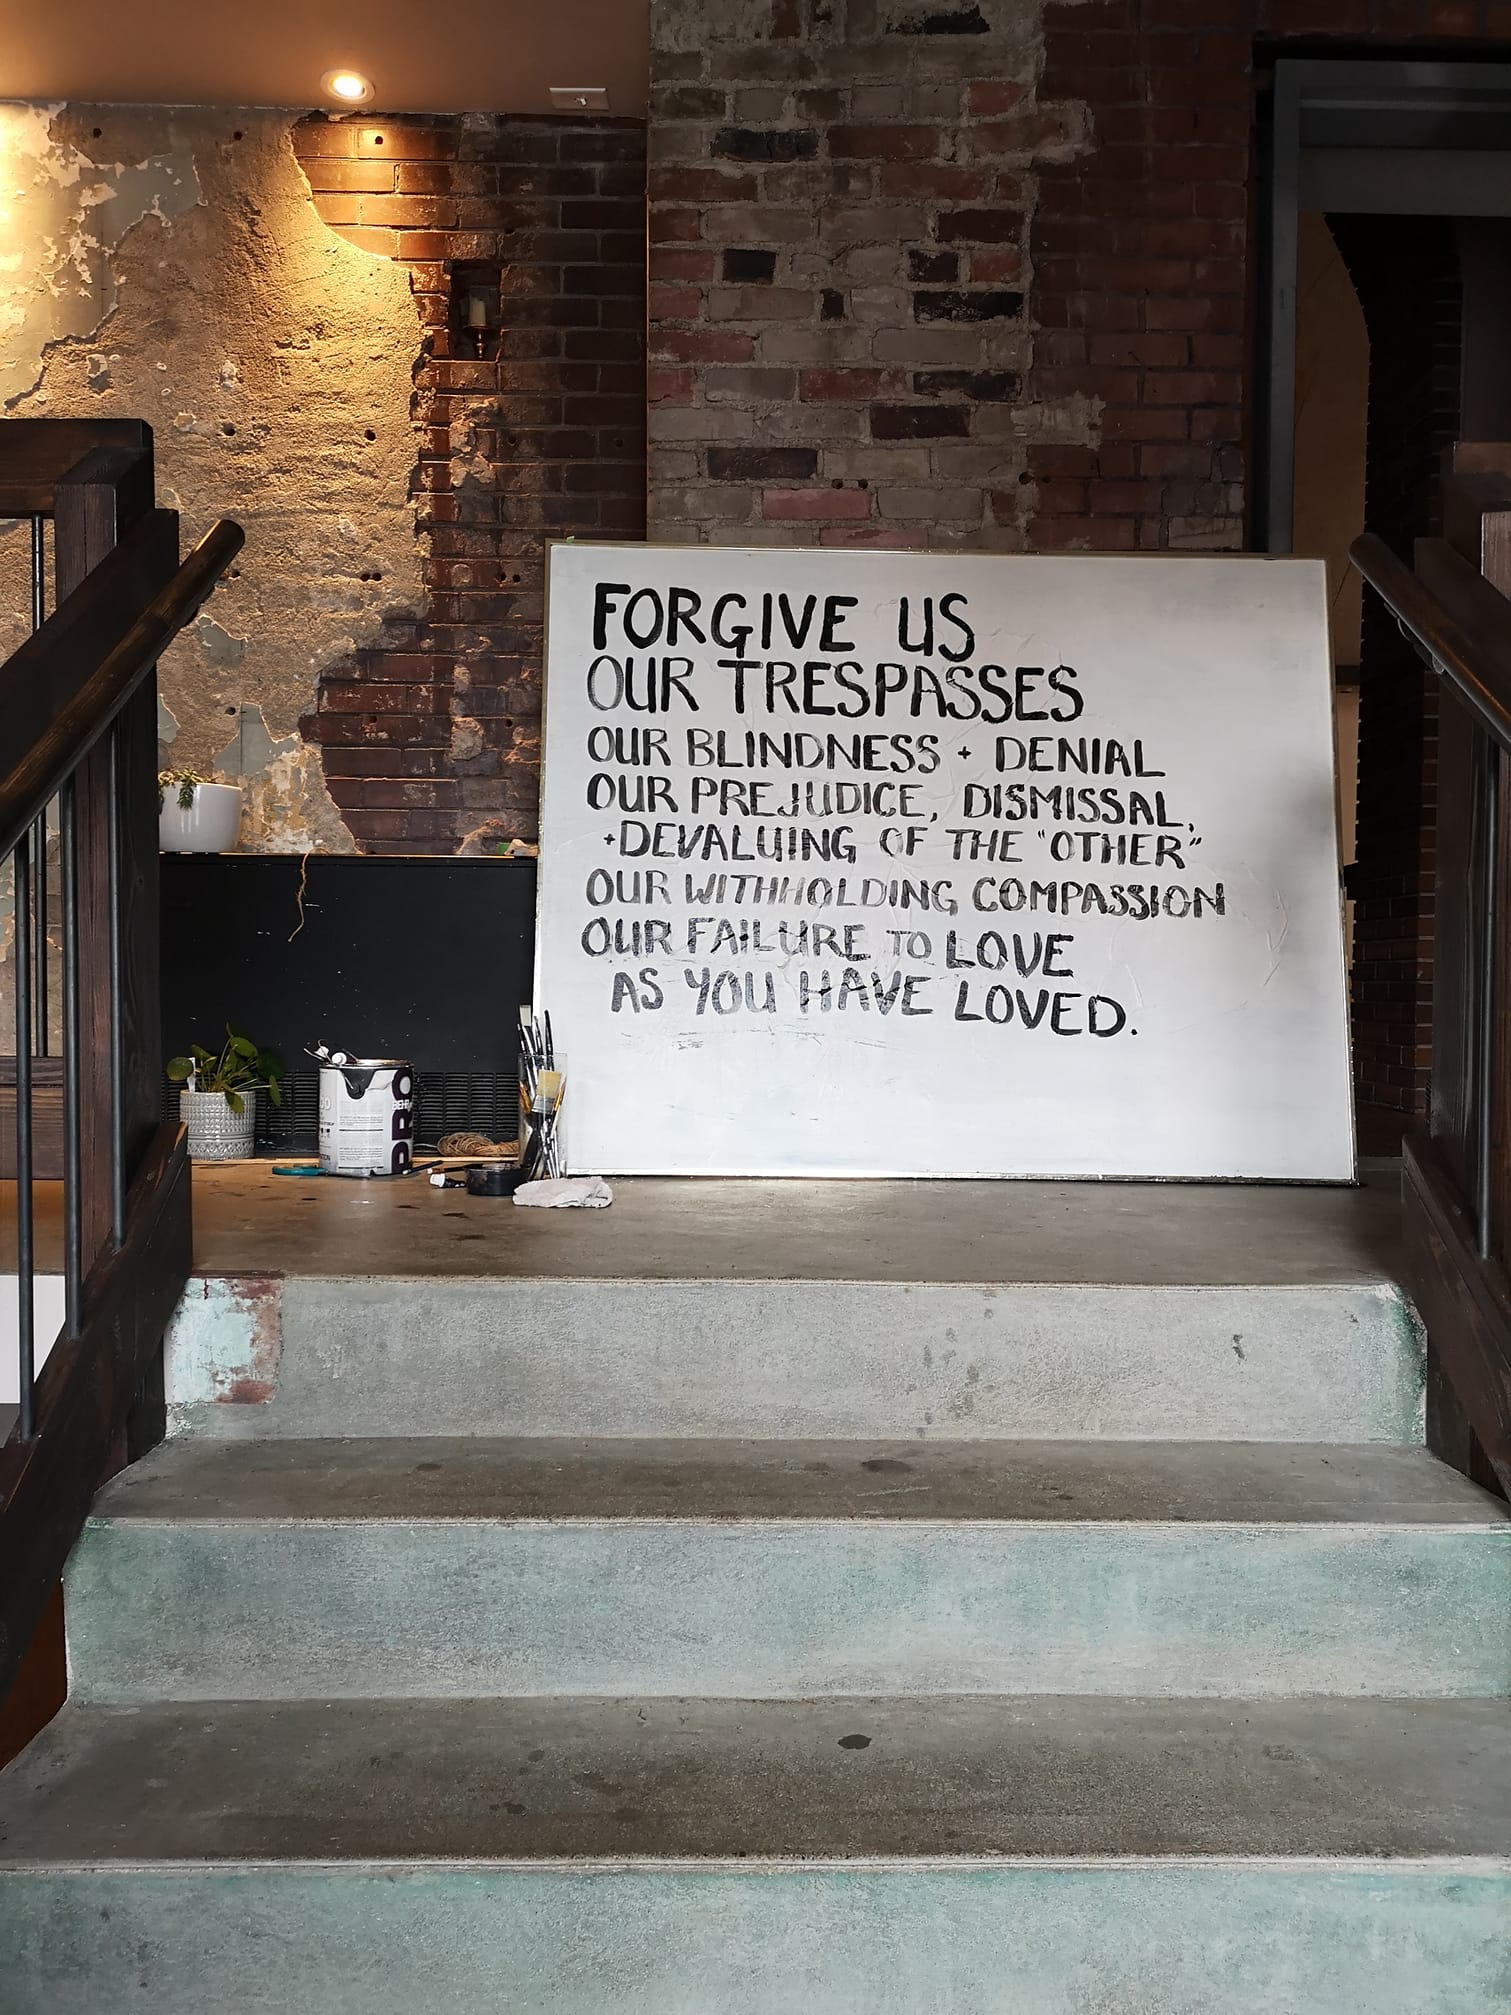 FORGIVE US
OUR TRESPASSES
OUR BLINDNESS + DENIAL
OUR PREJUDICE, DISMISSAL,
+DEVALUING OF THE "OTHER"
OUR WITHHOLDING COMPASSION
OUR FAILURE TO LOVE
AS YOU HAVE LOVED.
BEHR
PRO